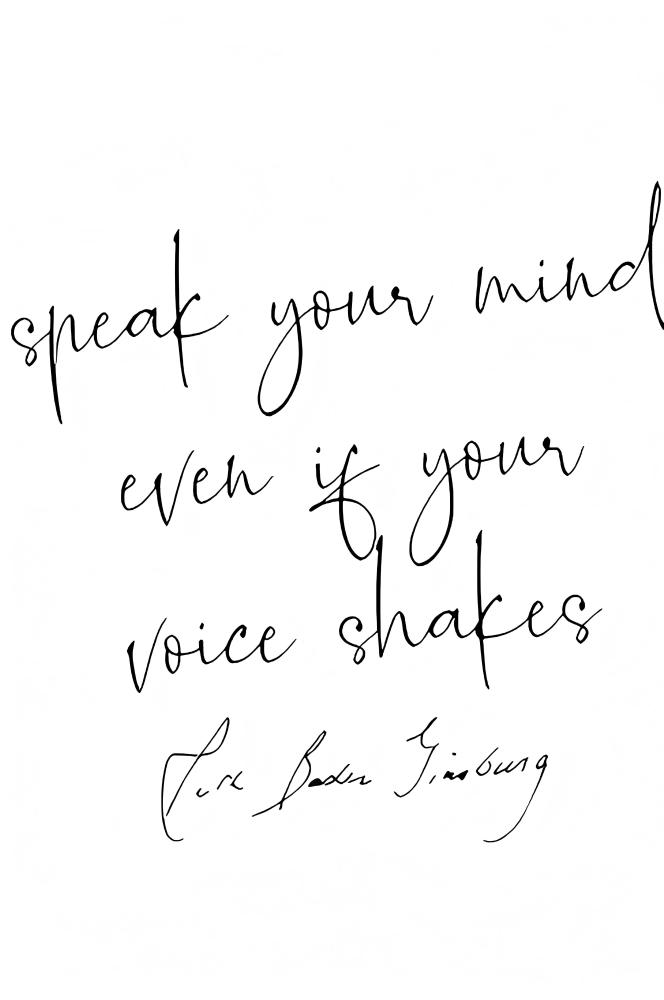 speak your mind
even if your
voice shakes
Ruth Bader Ginsburg